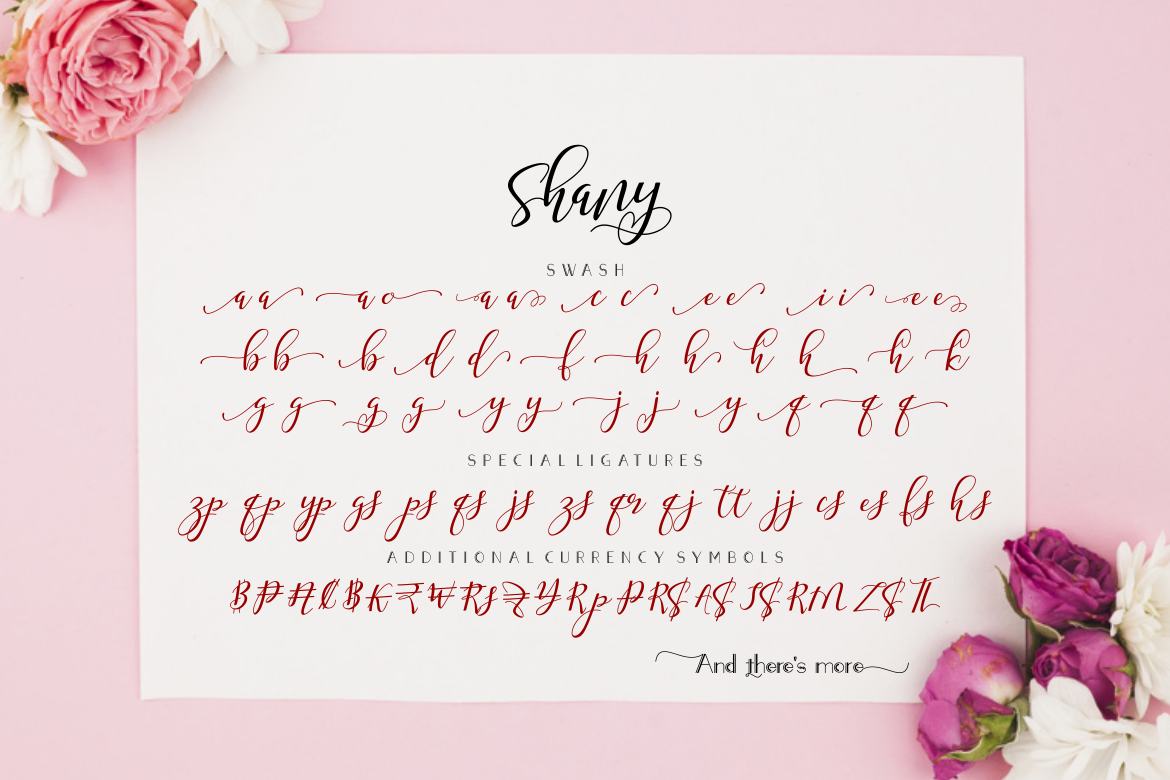 Shany
SWASH
aa ao aa cc ee ii ee
bb b d d f h h h h h k
g g g g y y j j y q q q
SPECIAL LIGATURES
zp qp yp gs ps qs js zs qr qj tt jj cs es fs hs
ADDITIONAL CURRENCY SYMBOLS
And there's more